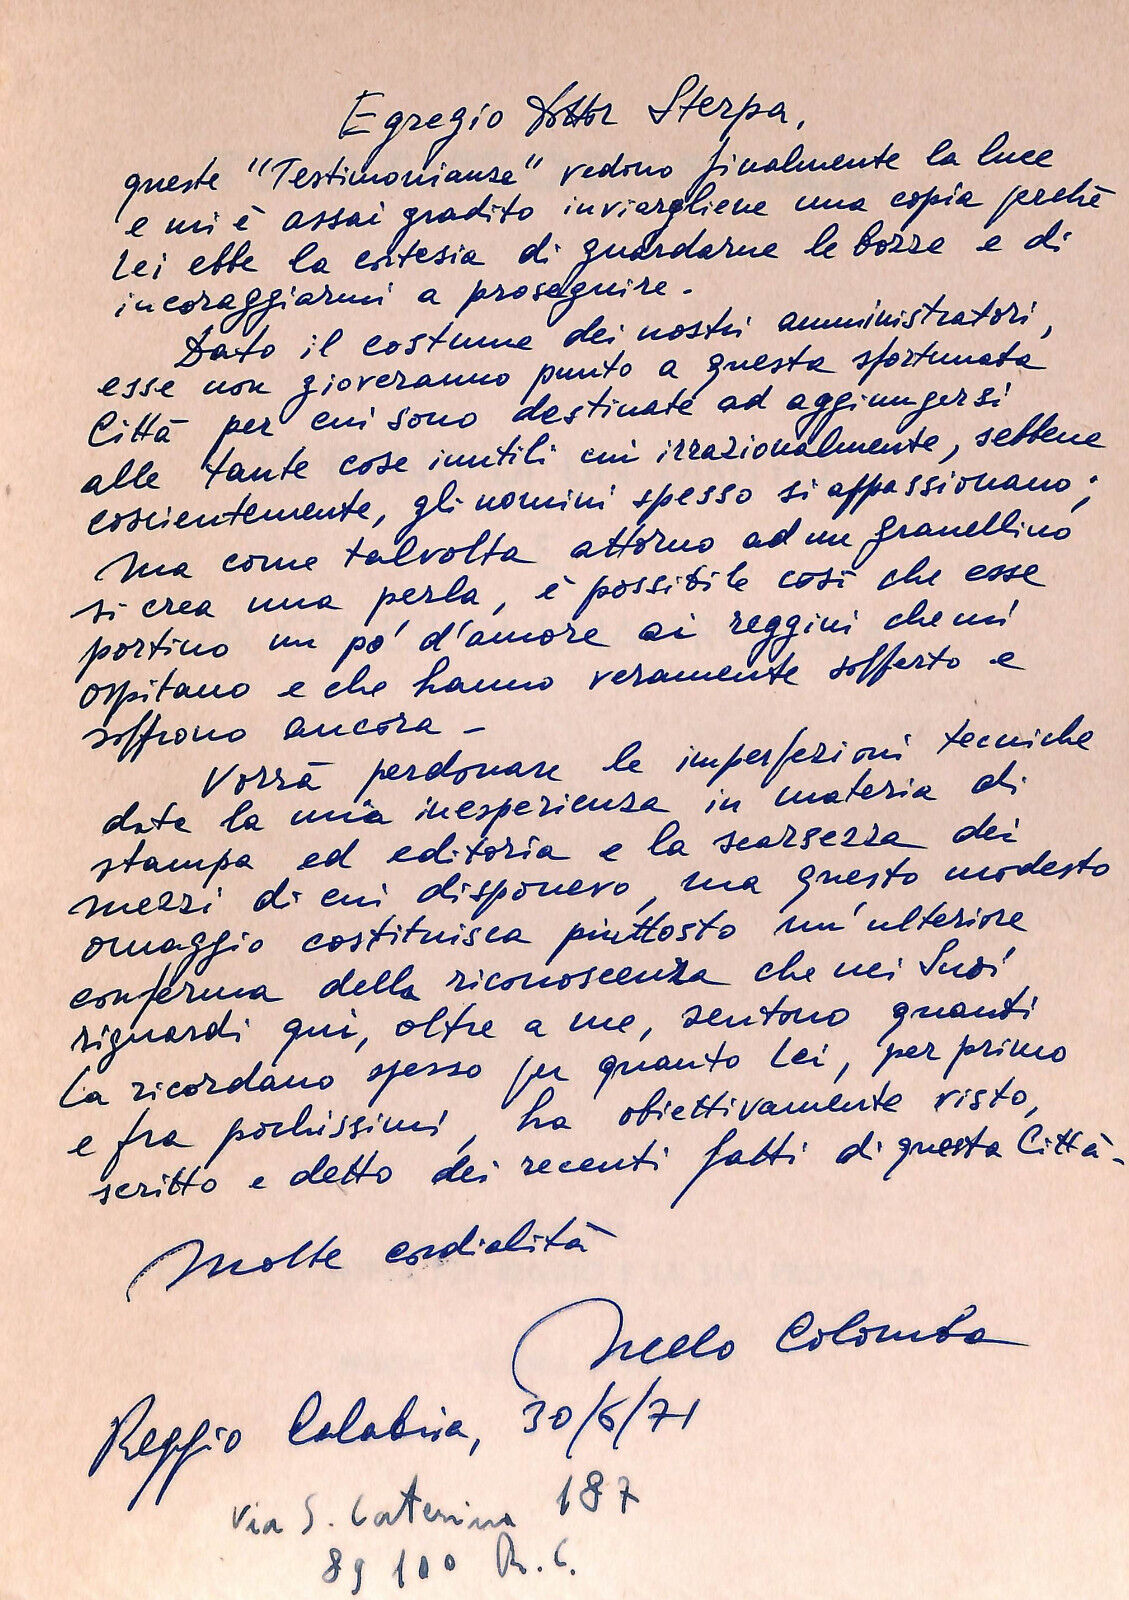 Egregio Dottor Sterpa,
queste "Testimonianze" vedono finalmente la luce
e mi è assai gradito inviargliene una copia perchè
Lei ebbe la cortesia di guardarne le bozze e di
incoraggiarmi a proseguire.
Dato il costume dei nostri amministratori,
esse non gioveranno punto a questa sfortunata
Città per cui sono destinate ad aggiungersi
alle tante cose inutili cui irrazionalmente, sebbene
coscientemente, gli uomini spesso si appassionano;
ma come talvolta attorno ad un granellino
si crea una perla, è possibile così che esse
portino un pò d'amore ai reggini che mi
ospitano e che hanno veramente sofferto e
soffrono ancora -
Vorrà perdonare le imperfezioni tecniche
data la mia inesperienza in materia di
stampa ed editoria e la scarsezza dei
mezzi di cui disponevo, ma questo modesto
omaggio costituisca piuttosto un'ulteriore
conferma della riconoscenza che nei Suoi
riguardi qui, oltre a me, sentono quanti
La ricordano spesso per quanto Lei, per primo
e fra pochissimi, ha obiettivamente visto,
scritto e detto dei recenti fatti di questa Città -
Molte cordialità
Nello Colomba
Reggio Calabria, 30/6/71
Via S. Caterina 187
89100 R. C.